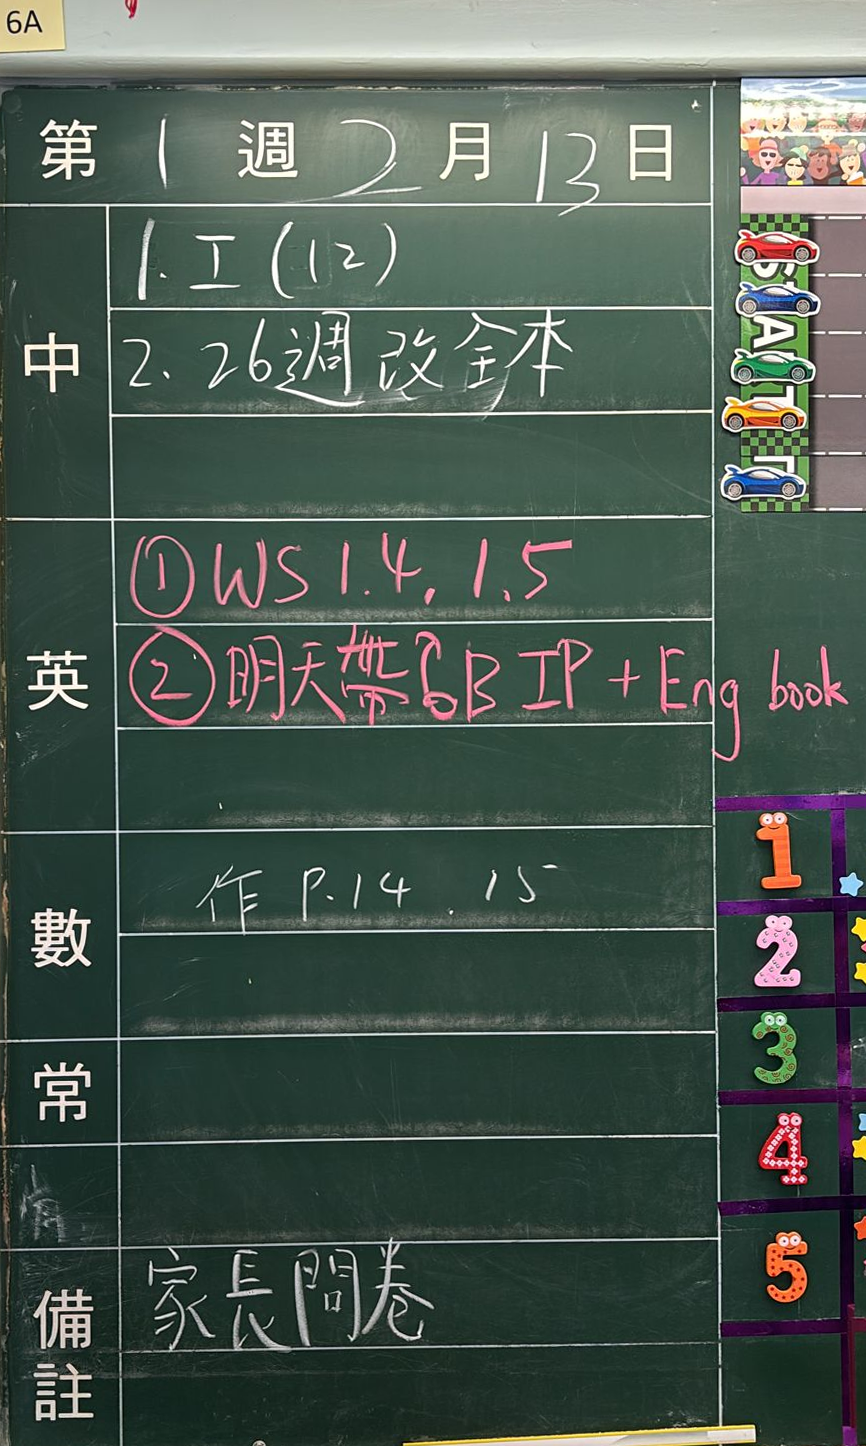 6A
第 1 週 2 月 13 日
中
1. 工 (12)
2. 26週 改全本
英
① WS 1.4, 1.5
② 明天帶 6B IP + Eng book
數
作 P.14 . 15
常
備註
家長問卷
START
1
2
3
4
5